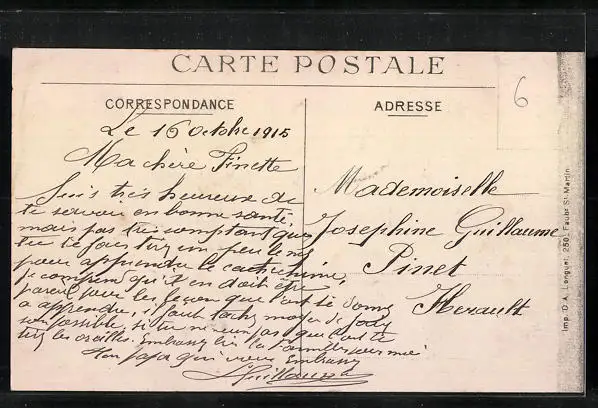 CARTE POSTALE
CORRESPONDANCE
ADRESSE
6
Le 16 Octobre 1915
Ma chère Finette
Suis très heureux de
te savoir en bonne santé,
mais pas très comptant que
tu te fais tirer un peu le nez
pour apprendre le catéchisme,
je comprend qu'il en doit être
pareil pour les leçon que l'on te donne
a apprendre, il faut tacher moyen de
si tu ne veux pas que l'on te
tire les oreilles. Embrasse bien la famille pour moi
Ton papa qui vous Embrasse
Guillaume
Mademoiselle
Josephine Guillaume
Pinet
Herault
Imp. D.A. Longuet, 250, Faubg St-Martin